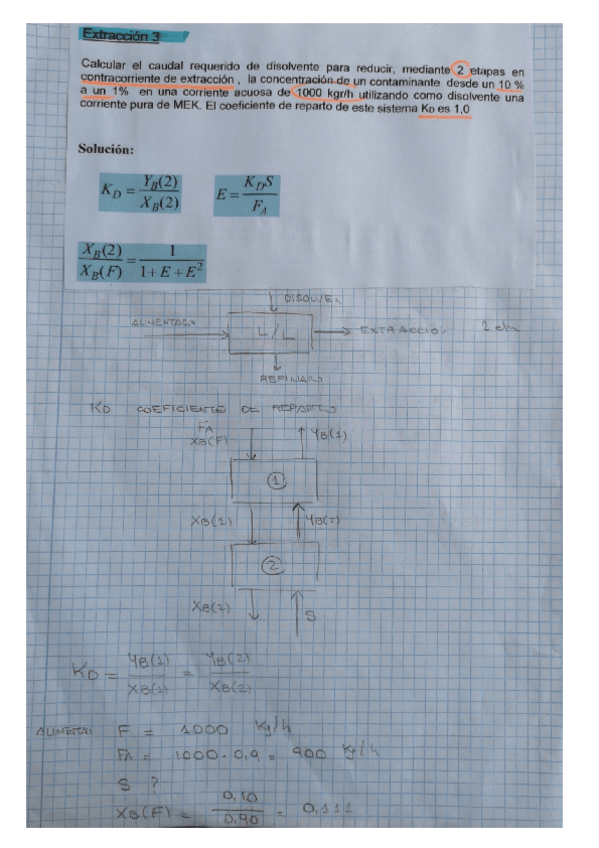 Extracción 3
Calcular el caudal requerido de disolvente para reducir, mediante 2 etapas en
contracorriente de extracción , la concentración de un contaminante desde un 10 %
a un 1% en una corriente acuosa de 1000 kgr/h utilizando como disolvente una
corriente pura de MEK. El coeficiente de reparto de este sistema KD es 1,0
Solución:
KD = YB(2) / XB(2)
E = KDS / FA
XB(2) / XB(F) = 1 / 1+E+E²
DISOLVE.
ALIMENTAC
L/L
EXTRACCIÓ
REFINADO
KD COEFICIENTE DE REPARTO
FA
XB(F)
YB(1)
1
XB(1)
YB(2)
2
XB(2)
S
KD = YB(1) / XB(1) = YB(2) / XB(2)
F = 1000 Kg/h
FA = 1000 · 0,9 = 900 Kg/h
S ?
XB(F) = 0,10 / 0,90 = 0,111